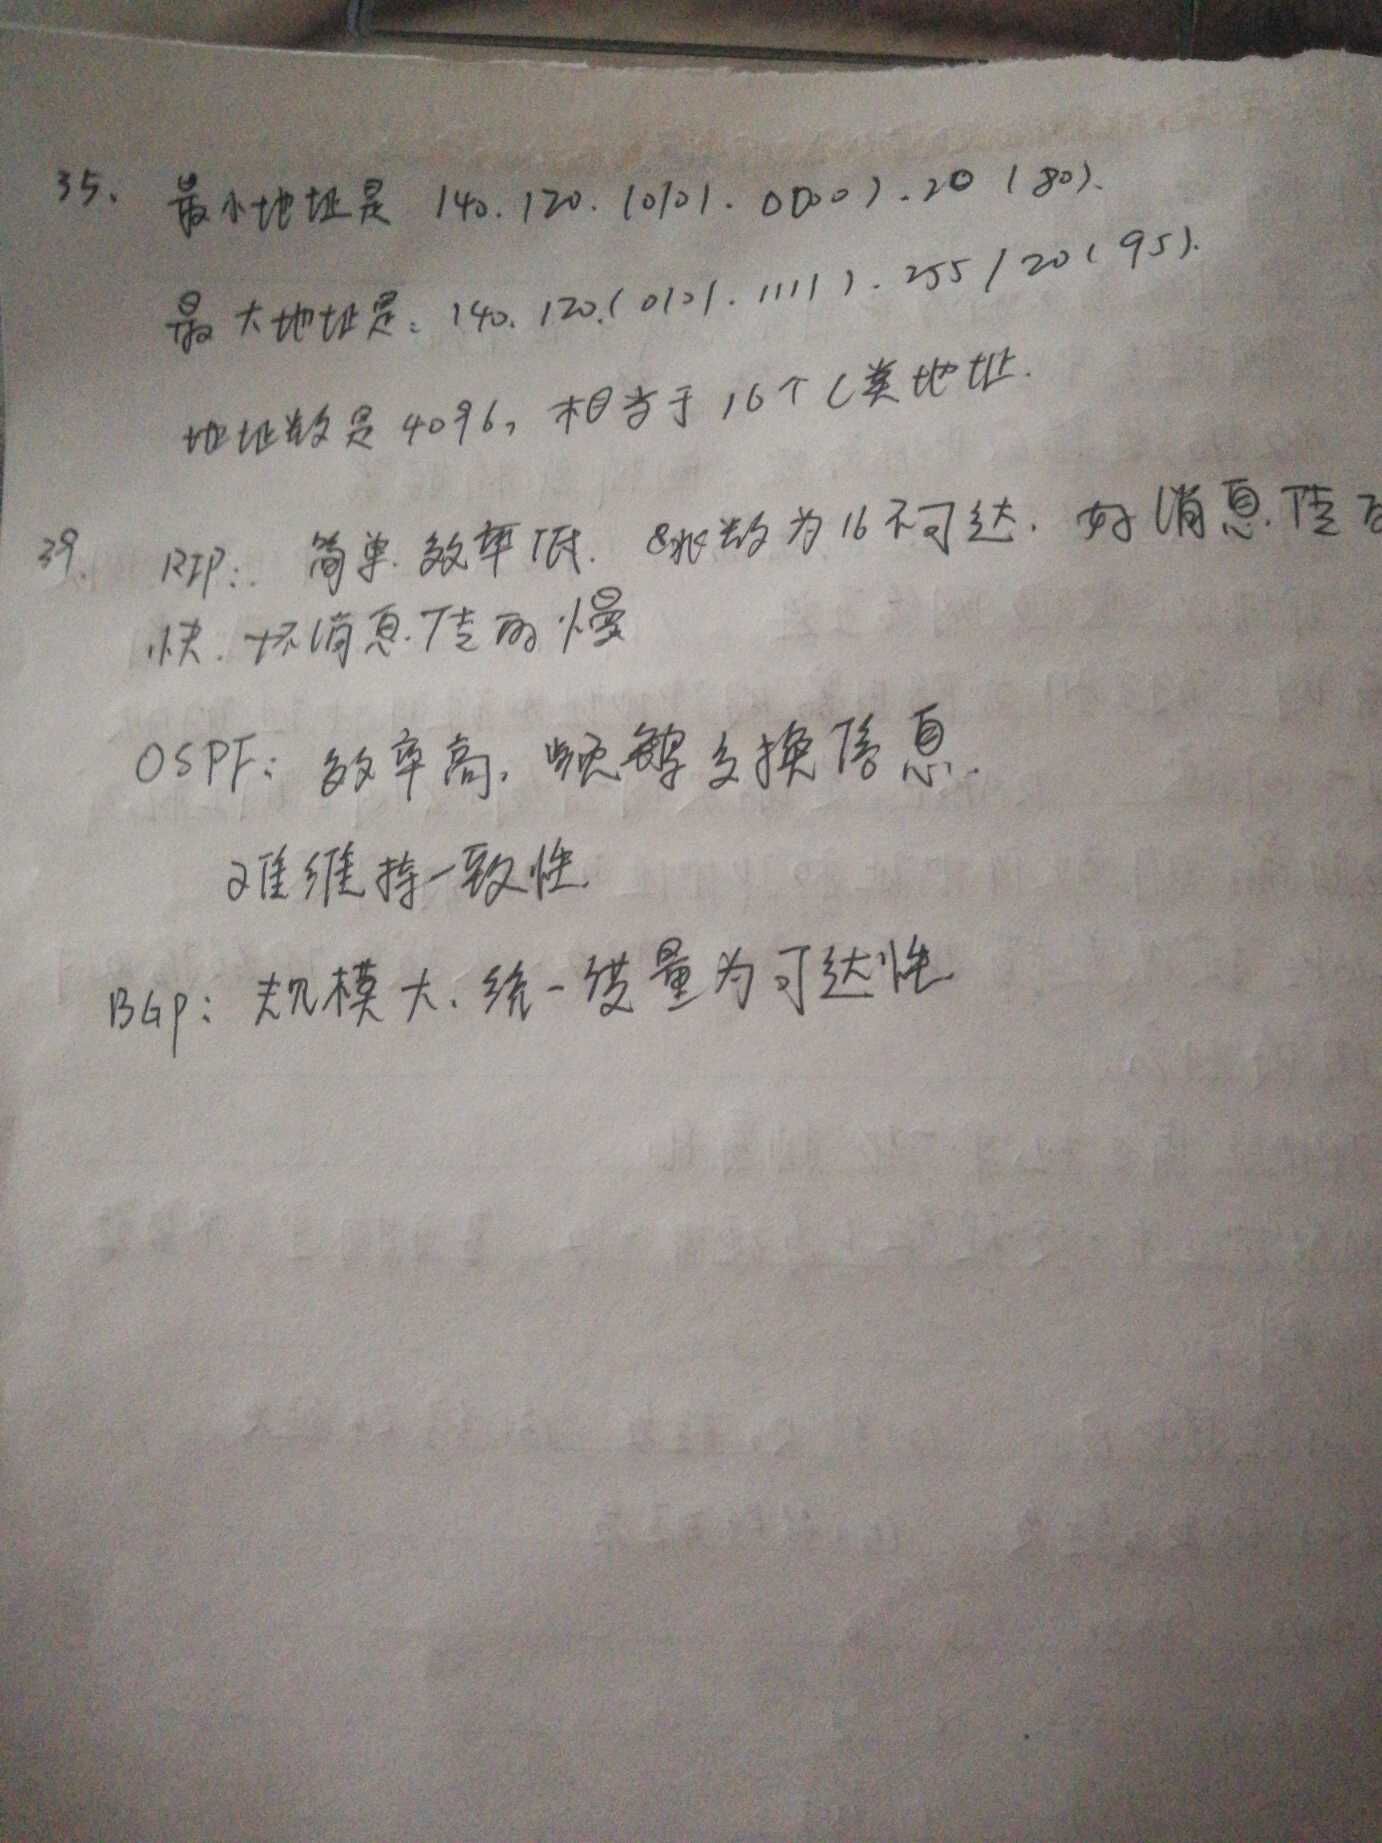 35. 最小地址是 140.120.(0101.0000).20 (80).
最大地址是: 140.120.(0101.1111).255/20(95).
地址数是4096, 相当于16个C类地址.
39. RIP: 简单. 效率低. 跳数为16不可达. 好消息传
快. 坏消息传的慢
OSPF: 效率高. 频繁交换信息.
难维持一致性.
BGP: 规模大. 统一度量为可达性